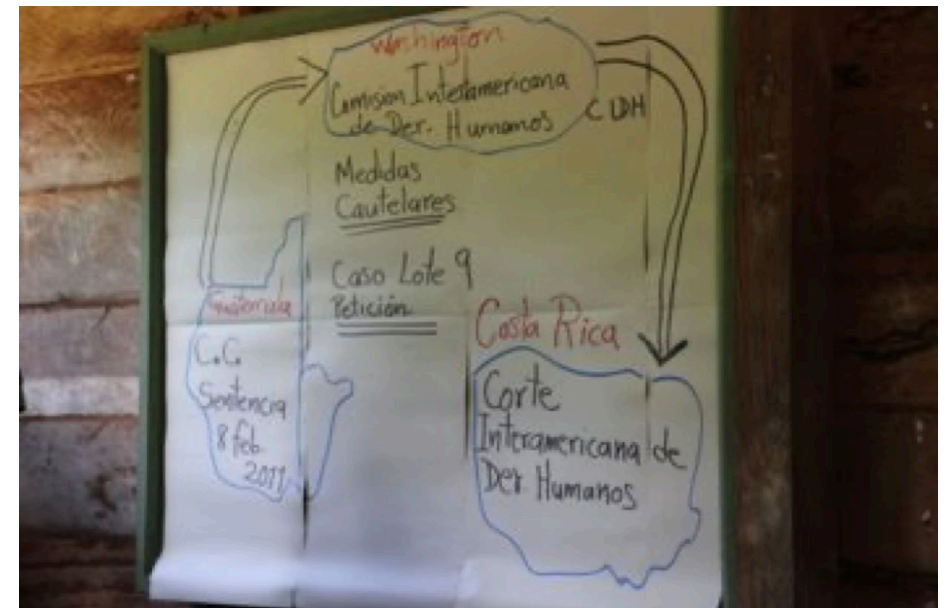 Washington
Comision Interamericana
de Der. Humanos
CIDH
Medidas
Cautelares
Caso Lote 9
Petición
Guatemala
C.C.
Sentencia
8 feb.
2011
Costa Rica
Corte
Interamericana de
Der. Humanos